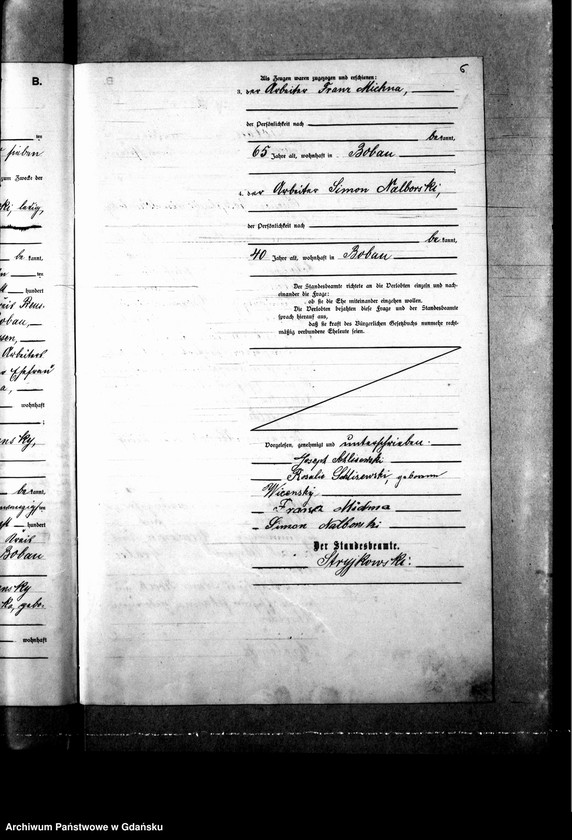 B.
zum Zwecke der
ki, ledig,
be kannt,
hundert
Arbeiters
wohnhaft
be kannt,
hundert
Kreis
Bobau
wohnhaft
6
Als Zeugen waren zugezogen und erschienen:
3. der Arbeiter Franz Michna,
der Persönlichkeit nach
be kannt,
65 Jahre alt, wohnhaft in Bobau
;
4. der Arbeiter Simon Nalborski,
der Persönlichkeit nach
be kannt,
40 Jahre alt, wohnhaft in Bobau
Der Standesbeamte richtete an die Verlobten einzeln und nach-
einander die Frage:
ob sie die Ehe miteinander eingehen wollen.
Die Verlobten bejahten diese Frage und der Standesbeamte
sprach hierauf aus,
daß sie kraft des Bürgerlichen Gesetzbuchs nunmehr recht-
mäßig verbundene Eheleute seien.
Vorgelesen, genehmigt und unterschrieben.
Joseph
Rosalie geborene
Wicensky
Simon Nalborski
Der Standesbeamte.
Stryjkowski.
Archiwum Państwowe w Gdańsku